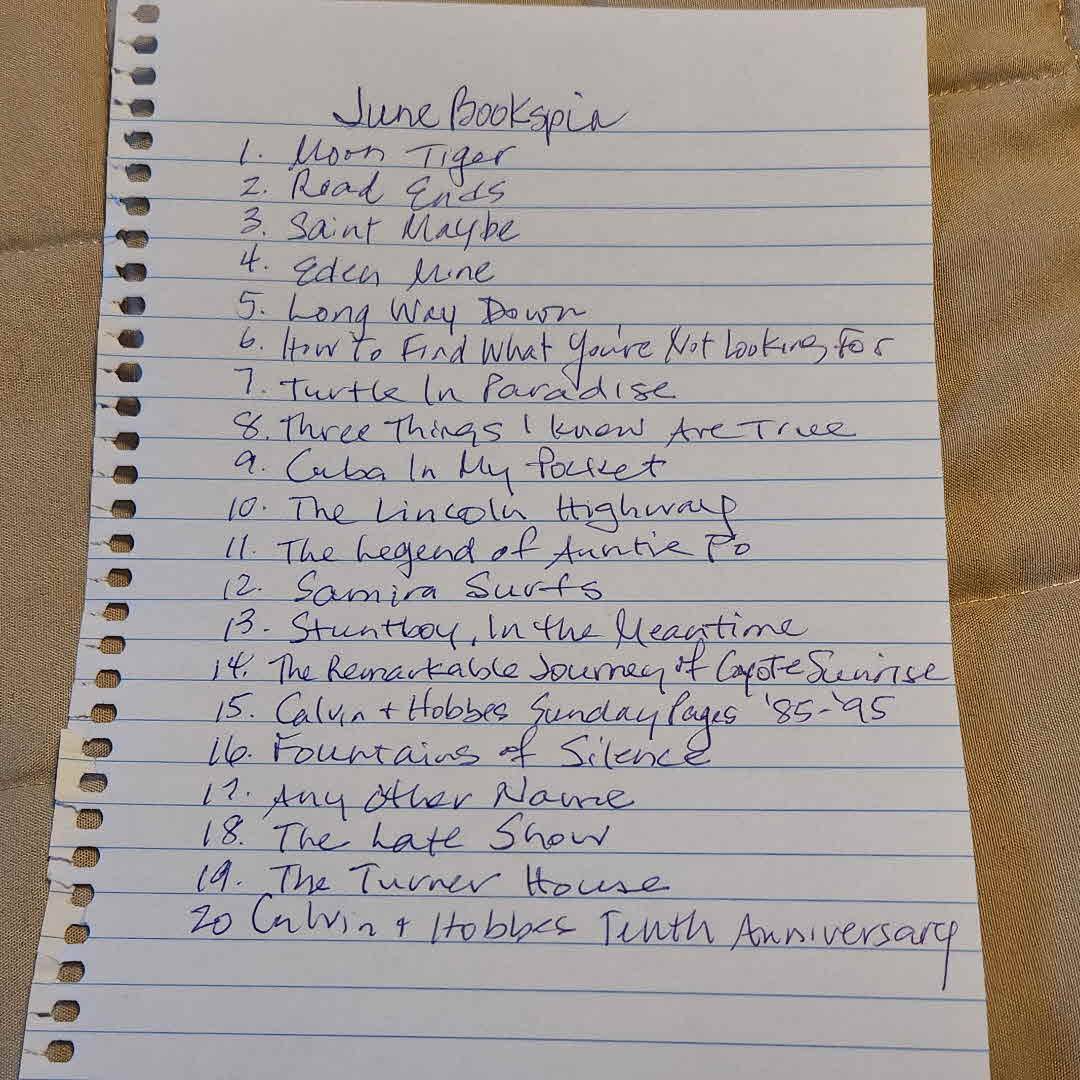 June Bookspin
1. Moon Tiger
2. Road Ends
3. Saint Maybe
4. Eden Mine
5. Long Way Down
6. How To Find What You're Not Looking For
7. Turtle In Paradise
8. Three Things I Know Are True
9. Cuba In My Pocket
10. The Lincoln Highway
11. The Legend of Auntie Po
12. Samira Surfs
13. Stuntboy, In the Meantime
14. The Remarkable Journey of Coyote Sunrise
15. Calvin + Hobbes Sunday Pages '85-'95
16. Fountains of Silence
17. Any Other Name
18. The Late Show
19. The Turner House
20 Calvin + Hobbes Tenth Anniversary